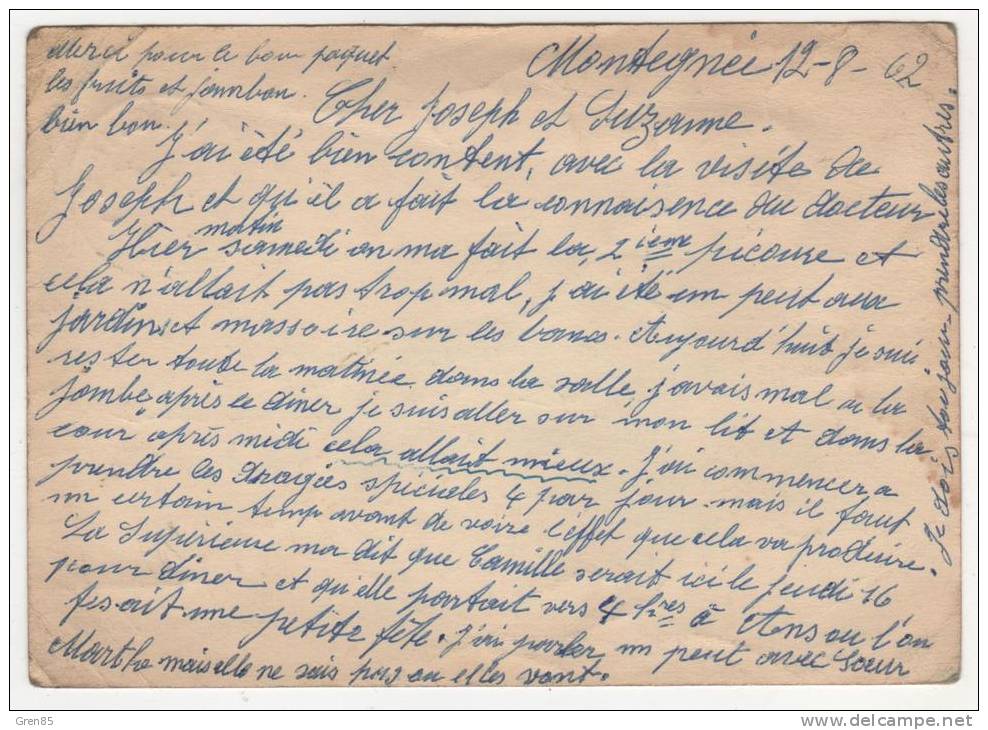 Merci pour le bon paquet
les fruits et jambon.
bien bon.
Montegnée 12-8-62
Cher Joseph et Suzanne.
J'ai été bien content, avec la visite de
Joseph et qu'il a fait la connaisence du docteur
Hier matin samedi on ma fait la 2ième picoure et
cela n'allait pas trop mal, j'ai été un peut aux
jardins et massoire sur les bancs. Aujourd'huit je suis
rester toute la matinée dans la salle, j'avais mal a la
jambe, après le diner je suis aller sur mon lit et dans la
cour après midi cela allait mieux. J'ai commencer a
prendre les dragées spiciales 4 par jour mais il faut
un certain temp avant de voire l'effet que cela va produire.
La Supérieure ma dit que Camille serait ici le jeudi 16
pour diner et qu'elle partait vers 4 hres à Ans ou l'on
fesait une petite fête. J'ai parler un peut avec Sœur
Martha mais elle ne sais pas ou elles vont.
Je dois toujour prendre les autres.
Gren85
www.delcampe.net